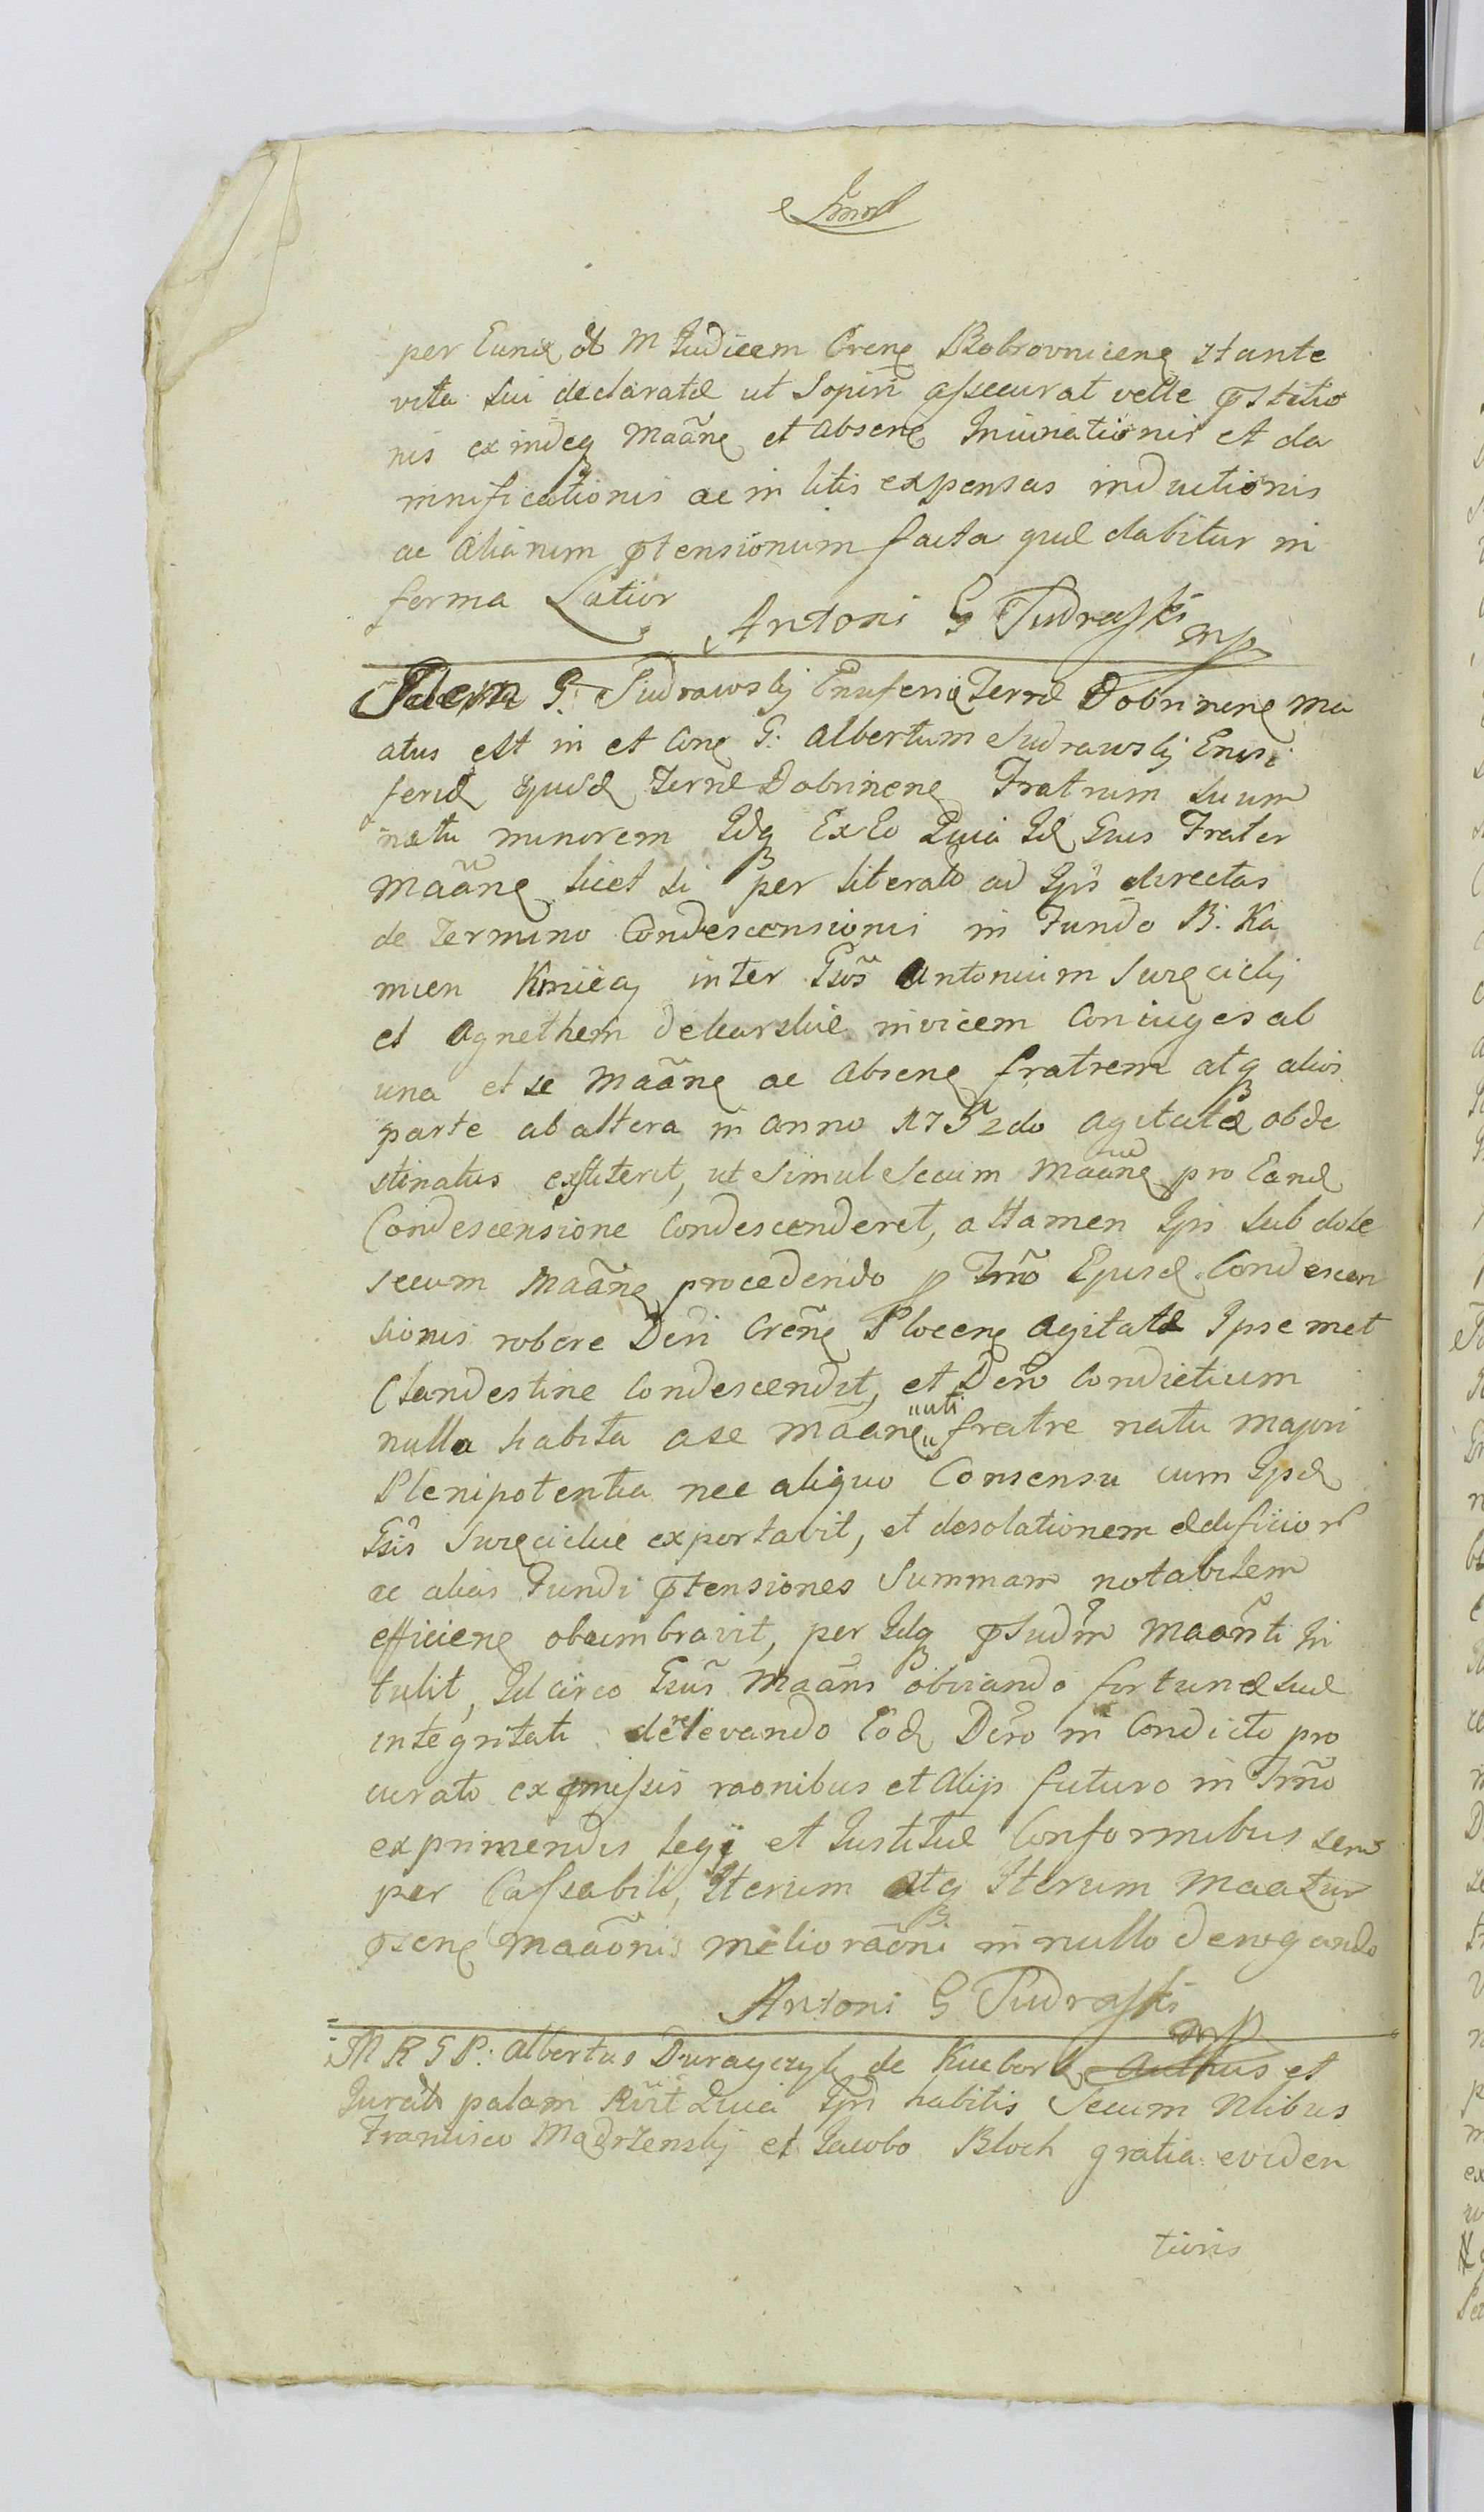 per Eund et M Judicem Crenẽ Bobrovnicenẽ stante
vita sui declaratæ ut sopiri assecurat velle pstitio
nis exindeq Maãnẽ et absenẽ Iniuriationis et da
mnificationis ac in litis expensas inductionis
ac aliarum ptensionum facta quæ dabitur in
forma Latior Antoni G Sudrasski mp
Idem G. Sudrawskj Ensiferi Terræ Dobrinenẽ ma
atus est in et Conẽ G: Albertum Sudrawskj Ensi
feri ejusd Terræ Dobrinenẽ Fratrum suum
natu minorem Idq Ex Eo Quia Id Gnus Frater
Maãnẽ licet si per literato ad Ipñ directas
de Termino Condescensionis in Fundo B. Ka
mien Kmiecy inter Gños Antonium
et Agnethem invicem Coniuges ab
una et se Maãnẽ ac absenẽ fratrem atq alios
parte ab altera in anno 1752do agitatæ obde
stinatus exstiterit, ut simul secum Maãnẽ pro Eand
Condescensione condescenderet, attamen Ipi sub dole
secum Maãnẽ procedendo p Trño Ejusd Condescen
sionis robore Deri Crenẽ Plocenẽ agitatæ Ipse met
Clandestine Condescendit, et Dero Condictium
nulla habita a se Maãnẽ "uti" fratre natu majori
Plenipotentia nec aliquo Consensu cum Ipsd
Gñis exportavit, et desolationem ædificior
ac alias Fundi ptensiones Summam notabilem
efficienẽ obumbravit, per Idq psudm Maãnti In
tulit, Idcirco Gnũs Maãns obviando fortunæ suæ
integritati derelevando Eod Dero in Condicto pro
curato ex pmissis raonibus et Alijs futuro in Trño
exprimendis legi et Justitiæ Conformibus sem
per Cassabili, Iterum atq Iterum Maatur
psenẽ Maãonis melioraõni in nullo derogando
Antoni G Sudrasski mp
M R S P: Albertus de et
Juratus palam Rñit Quia Ipñ habitis Secum Nlibus
Francisco Mądrzenskj et Jacobo Bloch gratia eviden
tioris